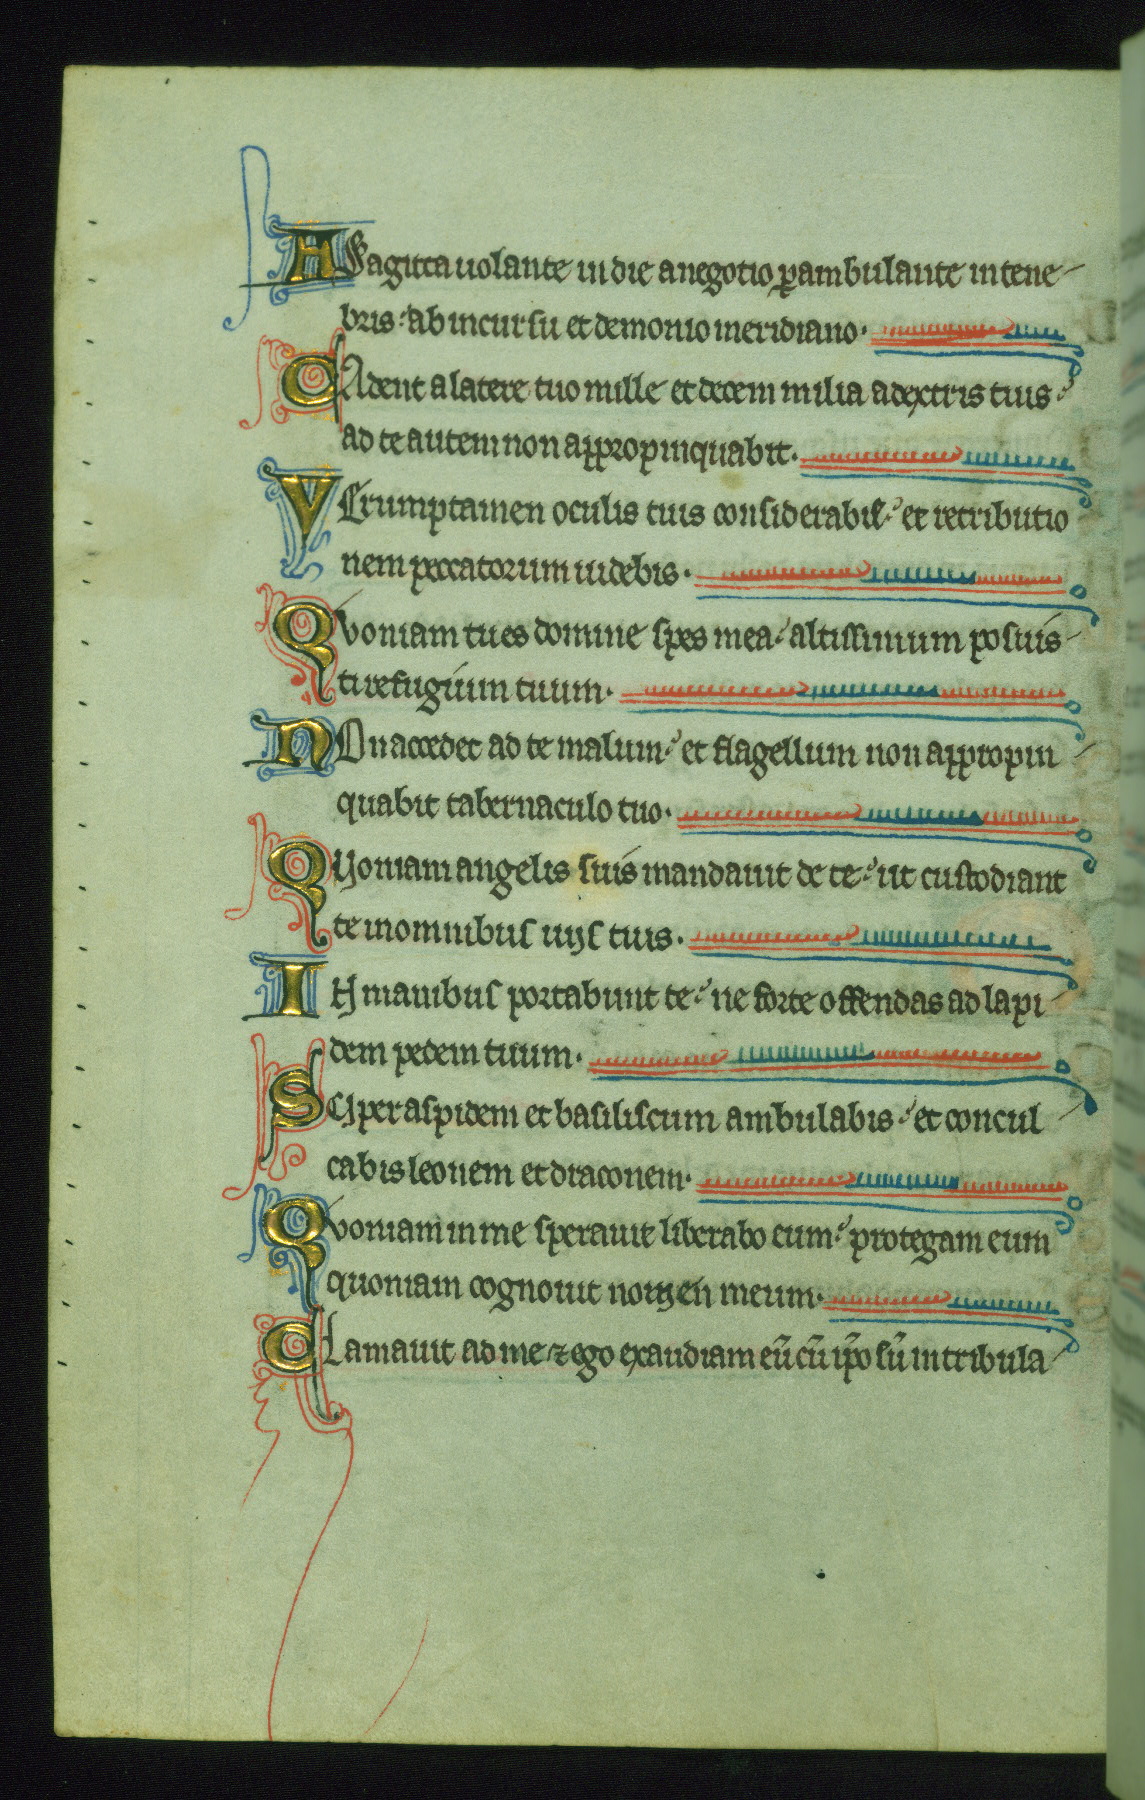 A Sagitta uolante in die a negotio ꝑambulante in tene
bris: ab incursu et demonio meridiano.
CAdent a latere tuo mille et decem milia a dextris tuis:
ad te autem non appropinquabit.
VErumptamen oculis tuis considerabis: et retributio
nem peccatorum uidebis.
Quoniam tu es domine spes mea: altissimum posuis
ti refugium tuum.
NOn accedet ad te malum: et flagellum non appropin
quabit tabernaculo tuo.
QUoniam angelis suis mandauit de te: ut custodiant
te in omnibus uijs tuis.
IN manibus portabunt te: ne forte offendas ad lapi
dem pedem tuum.
SUper aspidem et basiliscum ambulabis: et concul
cabis leonem et draconem.
Quoniam in me sperauit liberabo eum: protegam eum
quoniam cognouit nomen meum.
Clamauit ad me ⁊ ego exaudiam eū cū ip̄o sū in tribula